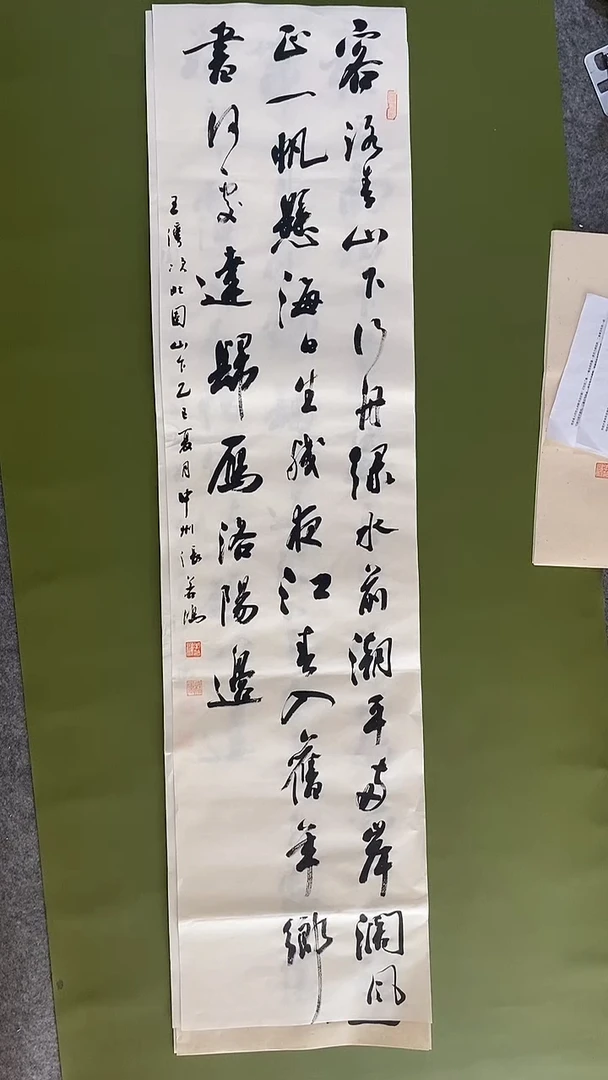 客路青山下行舟綠水前潮平兩岸濶風
正一帆懸海日生殘夜江春入舊年鄉
書何處達歸鴈洛陽邊
王灣次北固山下乙巳夏月中州張